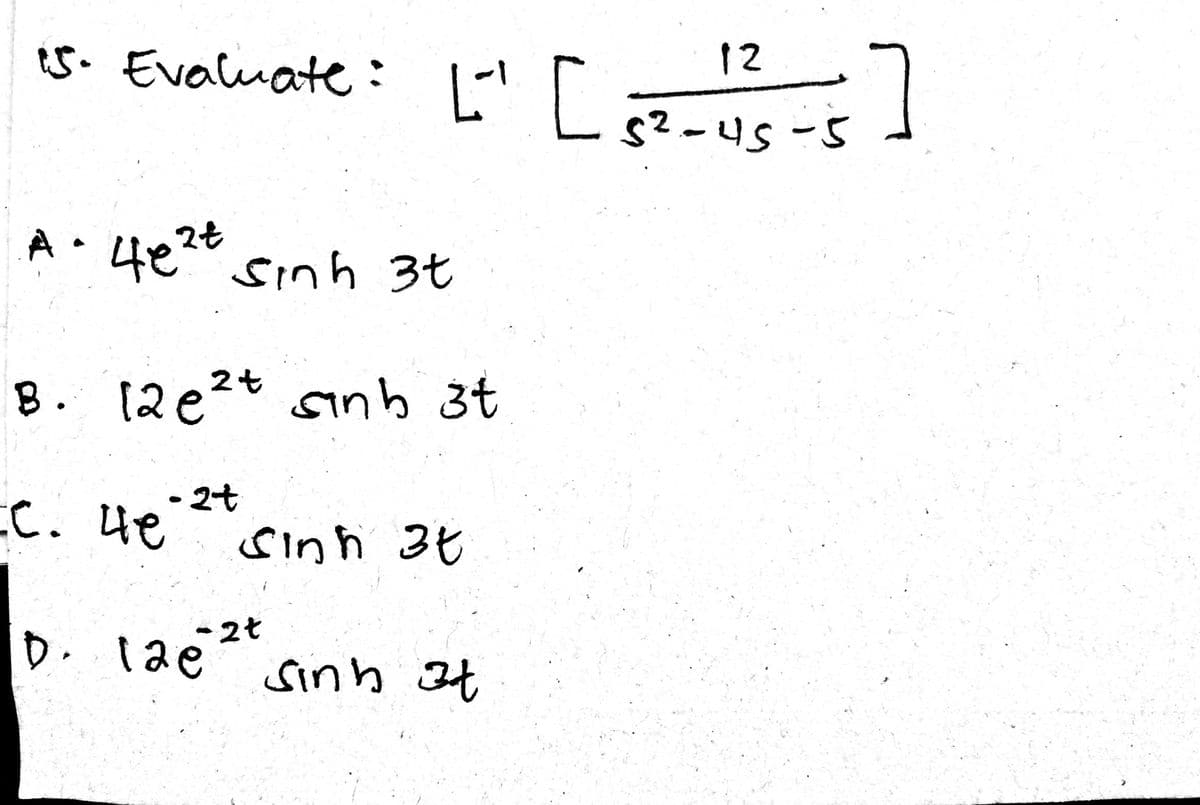 15. Evaluate: L⁻¹ [ 12 / s² - 4s - 5 ]
A. 4e²ᵗ sinh 3t
B. 12e²ᵗ sinh 3t
C. 4e⁻²ᵗ sinh 3t
D. 12e⁻²ᵗ sinh 3t